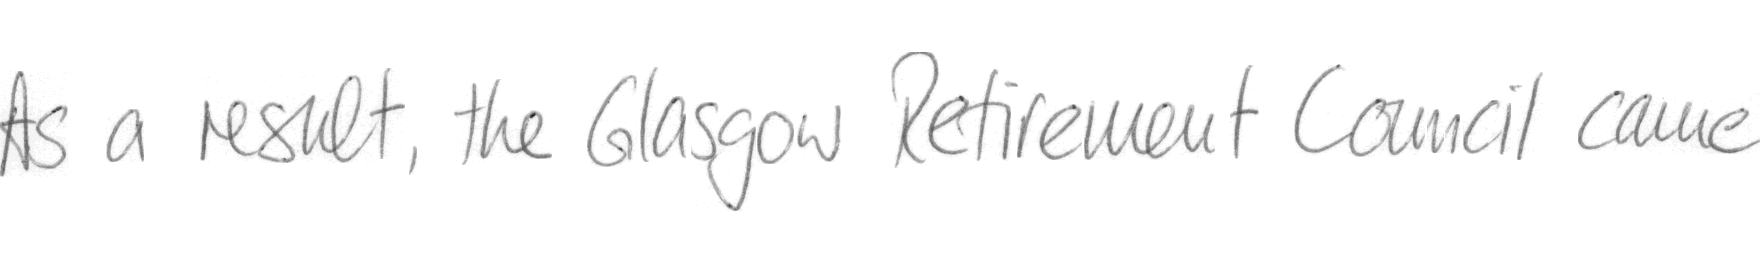 As a result, the Glasgow Retirement Council came